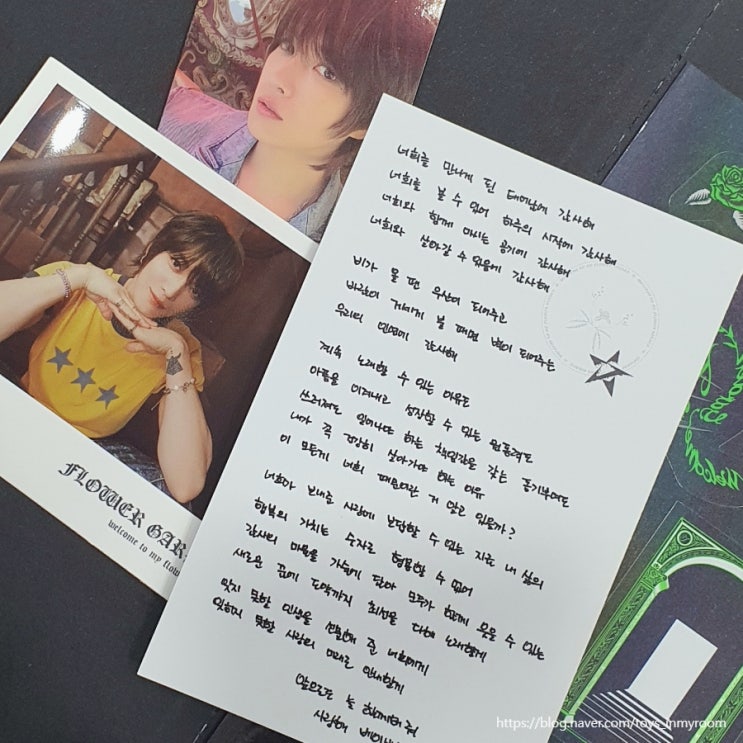 너희를 만나게 된 태어남에 감사해
너희를 볼 수 있어 하루의 시작에 감사해
너희와 함께 마시는 공기에 감사해
너희와 살아갈 수 있음에 감사해
비가 올 땐 우산이 되어주고
바람이 거세게 불 때면 벽이 되어주는
우리의 인연에 감사해
계속 노래할 수 있는 이유도
아픔을 이겨내고 성장할 수 있는 원동력도
쓰러져도 일어나야 하는 책임감을 갖는 동기부여도
내가 꼭 건강히 살아가야 하는 이유
이 모든게 너희 때문이란 거 알고 있을까?
너희가 보내준 사랑에 보답할 수 있는 지금 내 삶의
행복의 가치는 숫자로 형용할 수 없어
감사의 마음을 가슴에 담아 모두가 함께 웃을 수 있는
새로운 꿈에 도약까지 최선을 다해 노래할게
잊지 못할 인생을 선물해 준 너희에게
잊히지 못할 사랑의 미래로 안내할게
앞으로도 늘 함께해 줘
사랑해
FLOWER GAR
welcome to my flow
https://blog.naver.com/toys_inmyroom